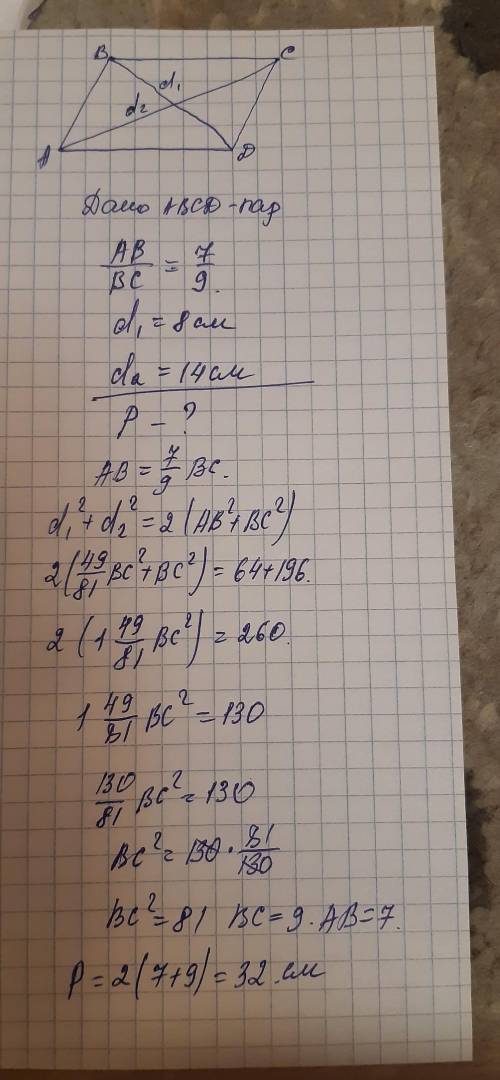 B C
d₁
d₂
A D
Дано ABCD - пар
AB/BC = 7/9.
d₁ = 8 см
d₂ = 14 см
P - ?
AB = 7/9 BC.
d₁² + d₂² = 2(AB² + BC²)
2(49/81 BC² + BC²) = 64 + 196.
2(1 49/81 BC²) = 260.
1 49/81 BC² = 130
130/81 BC² = 130
BC² = 130 · 81/130
BC² = 81 BC = 9. AB = 7.
P = 2(7+9) = 32 см